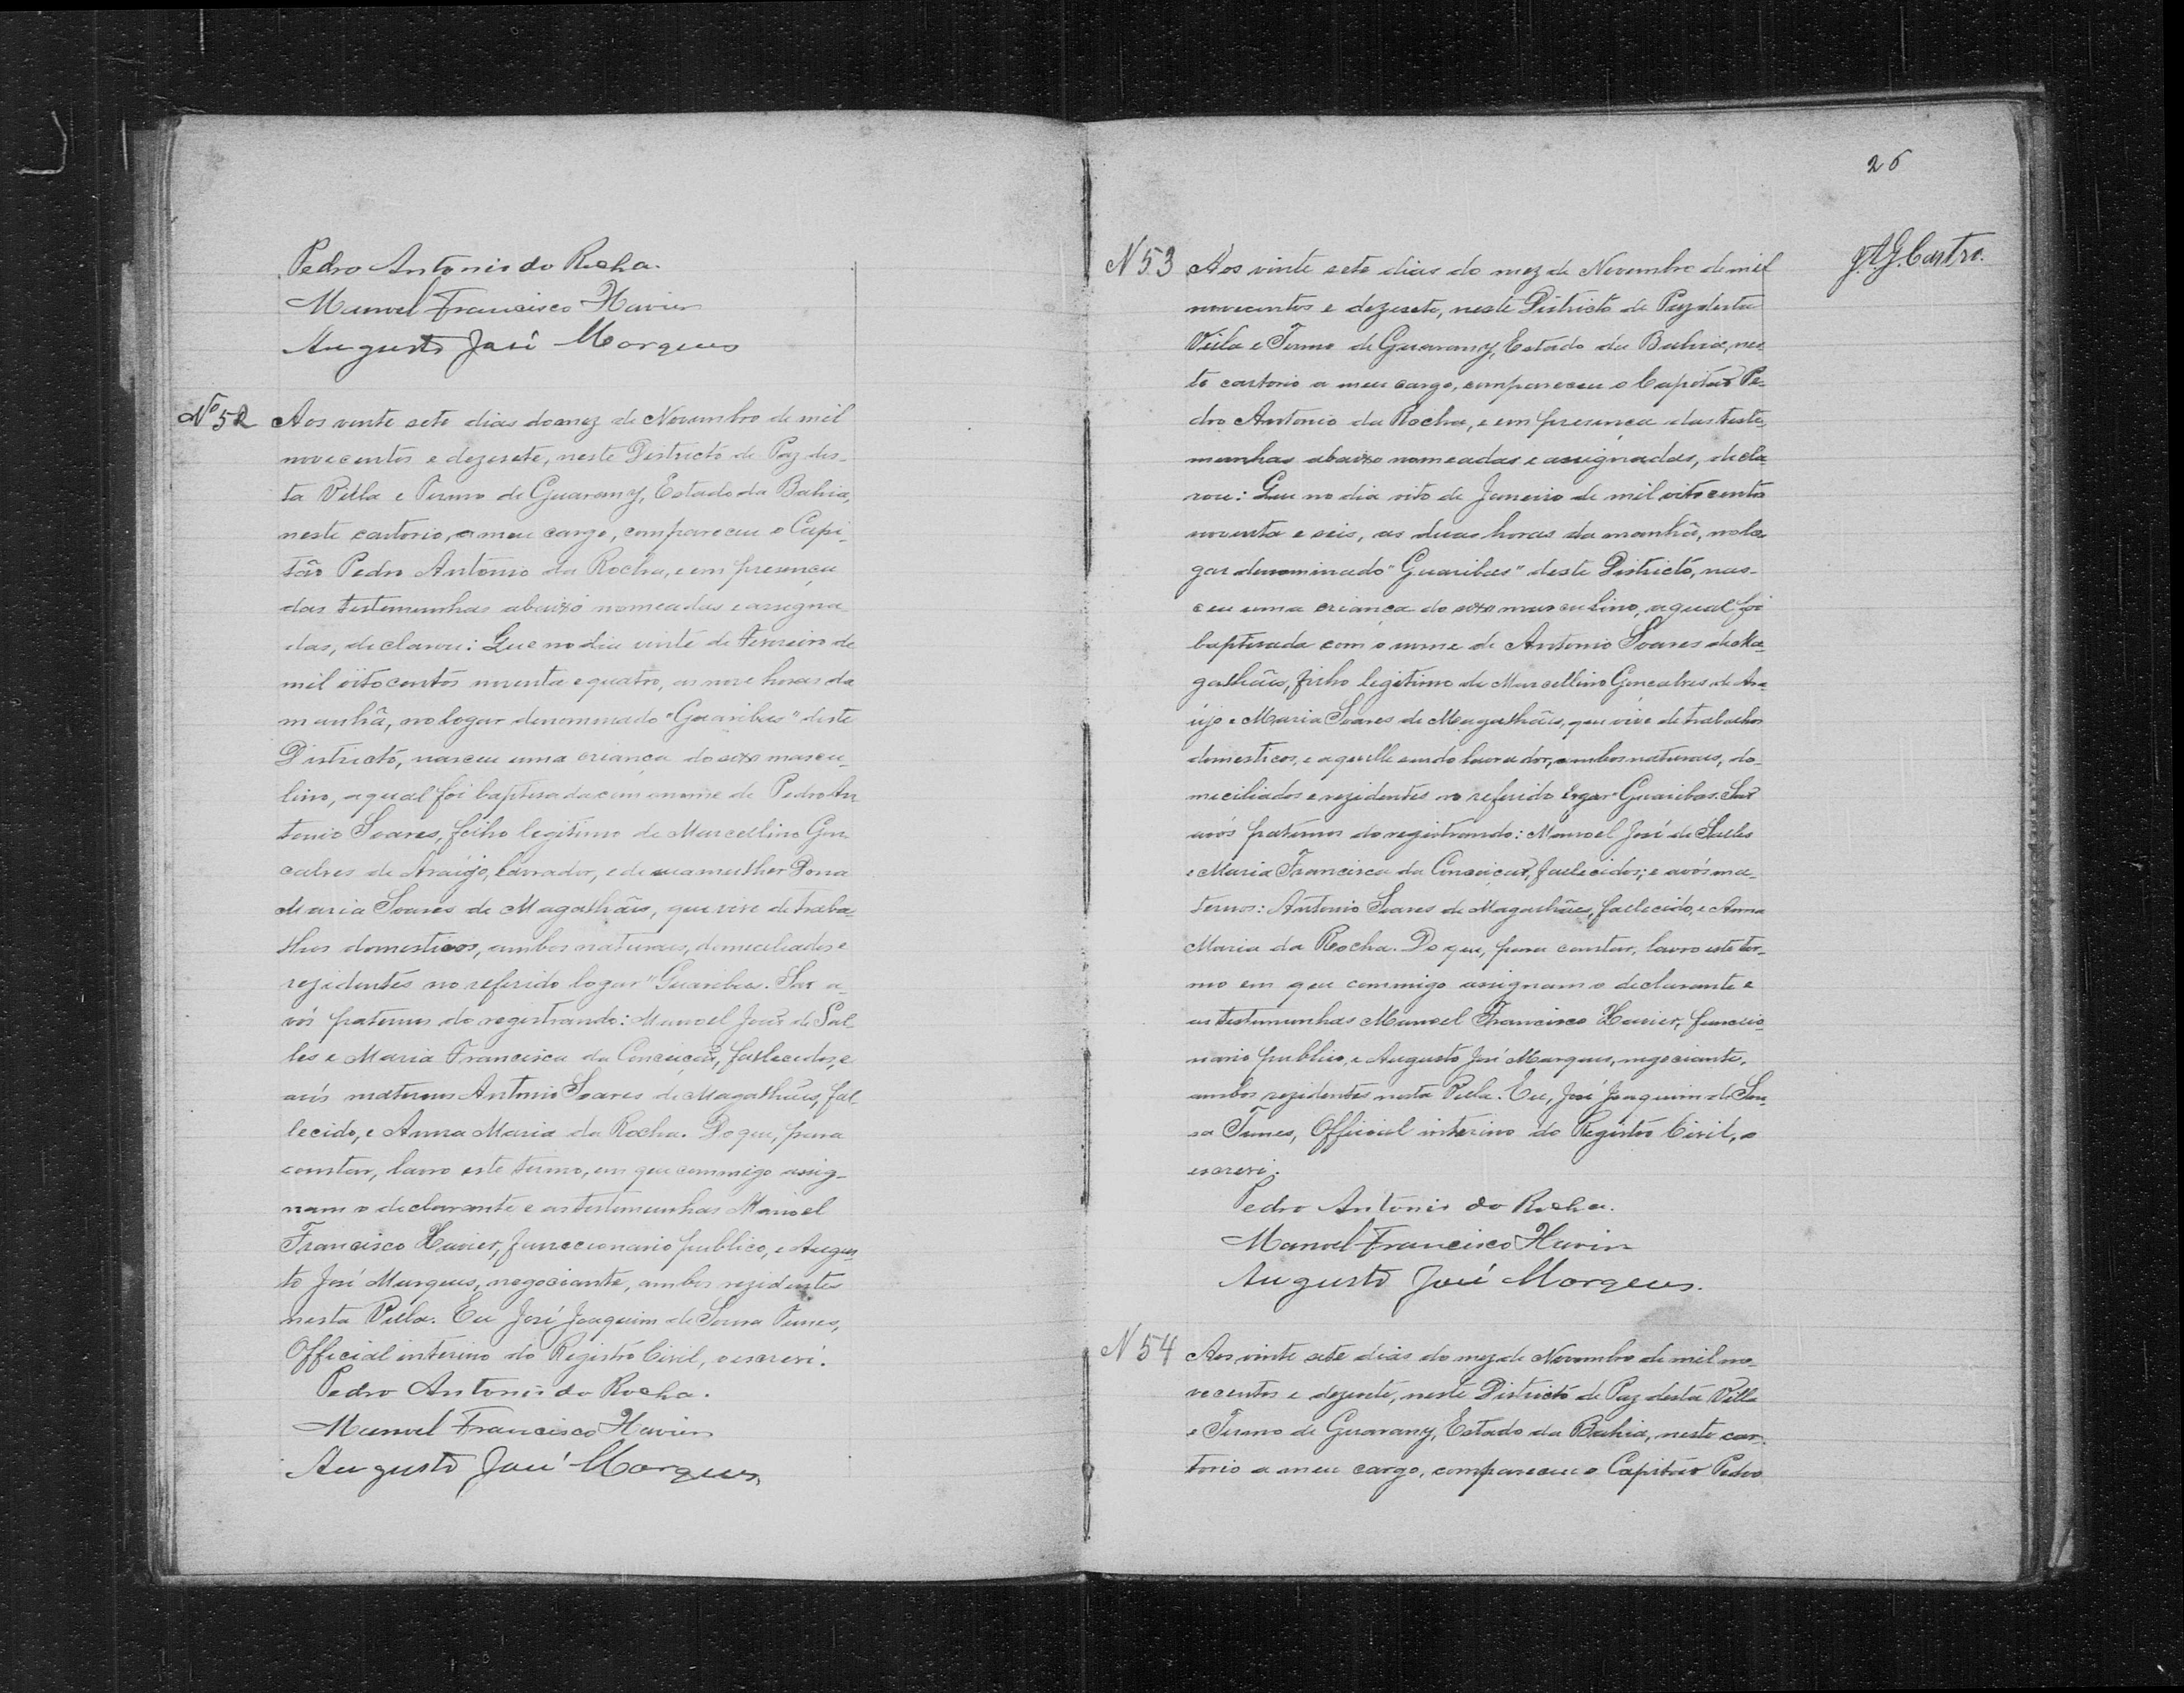 Pedro Antonio da Rocha.
Manoel Francisco Xavier
Augusto José Marques
Nº 52
Aos vinte sete dias do mez de Novembro de mil
novecentos e dezesete, neste Districto de Paz des-
ta Villa e Termo de Guarany, Estado da Bahia,
neste cartorio, a meu cargo, compareceu o Capi-
tão Pedro Antonio da Rocha, e em presença
das testemunhas abaixo nomeadas e assigna
das, declarou: Que no dia vinte de Fevereiro de
mil oitocentos noventa e quatro, as nove horas da
manhã, no logar denominado "Guaribas" deste
Districto, nasceu uma criança do sexo mascu-
lino, a qual foi baptisada com o nome de Pedro An
tonio Soares, filho legitimo de Marcellino Gon
calves de Araújo, lavrador, e de sua mulher Dona
Maria Soares de Magalhães, que vive de traba
lhos domesticos, ambos naturaes, domeciliados e
rezidentes no referido logar "Guaribas. São a-
vós paternos do registrando: Manoel José de Sal
les e Maria Francisca da Conceição, fallecidos, e
avós maternos Antonio Soares de Magalhães, fal-
lecido, e Anna Maria da Rocha. Do que, para
constar, lavro este termo, em que commigo assig-
nam o declarante e as testemunhas Manoel
Francisco Xavier, funccionario publico, e Augus
to José Marques, negociante, ambos rezidentes
nesta Villa. Eu José Joaquim de Sousa Tunes,
Official interino do Registro Civil, o escrevi.
Pedro Antonio da Rocha.
Manoel Francisco Xavier
Augusto José Marques
26
J.A.G. Castro.
N 53
Aos vinte sete dias do mez de Novembro de mil
novecentos e dezesete, neste Districto de Paz desta
Villa e Termo de Guarany, Estado da Bahia, nes
te cartorio a meu cargo, compareceu o Capitão Pe-
dro Antonio da Rocha, e em presença das teste-
munhas abaixo nomeadas e assignadas, decla
rou: Que no dia oito de Janeiro de mil oitocentos
noventa e seis, as duas horas da manhã, no lo-
gar denominado "Guaribas" deste Districto, nas-
ceu uma criança do sexo masculino, a qual foi
baptisada com o nome de Antonio Soares de Ma-
galhães, filho legitimo de Marcellino Goncalves de Ara
újo e Maria Soares de Magalhães, que vive de trabalhos
domesticos, e aquelle sendo lavrador, ambos naturaes, do-
meciliados e rezidentes no referido logar "Guaribas. São
avós paternos do registrando: Manoel José de Salles
e Maria Francisca da Conceição, fallecidos; e avós ma-
ternos: Antonio Soares de Magalhães, fallecido, e Anna
Maria da Rocha. Do que, para constar, lavro este ter-
mo em que commigo assignam o declarante e
as testemunhas Manoel Francisco Xavier, funccio-
nario publico, e Augusto José Marques, negociante,
ambos rezidentes nesta Villa. Eu, José Joaquim de Sou-
sa Tunes, Official interino do Registro Civil, o
escrevi.
Pedro Antonio da Rocha.
Manoel Francisco Xavier
Augusto José Marques.
N 54
Aos vinte sete dias do mez de Novembro de mil no-
vecentos e dezesete, neste Districto de Paz desta Villa
e Termo de Guarany, Estado da Bahia, neste car-
torio a meu cargo, compareceu o Capitão Pedro